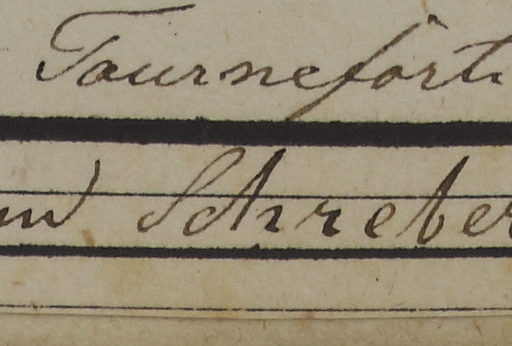 Tournefort.
Schreber